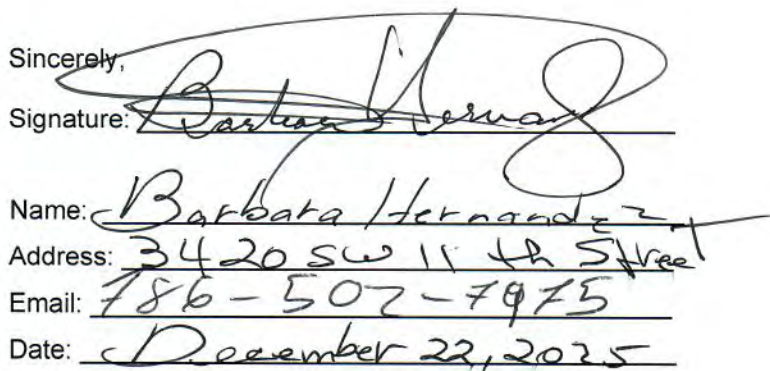 Sincerely,
Signature: Barbara Hernandez
Name: Barbara Hernandez
Address: 3420 SW 11 th Street
Email: 786-502-7975
Date: December 22, 2025